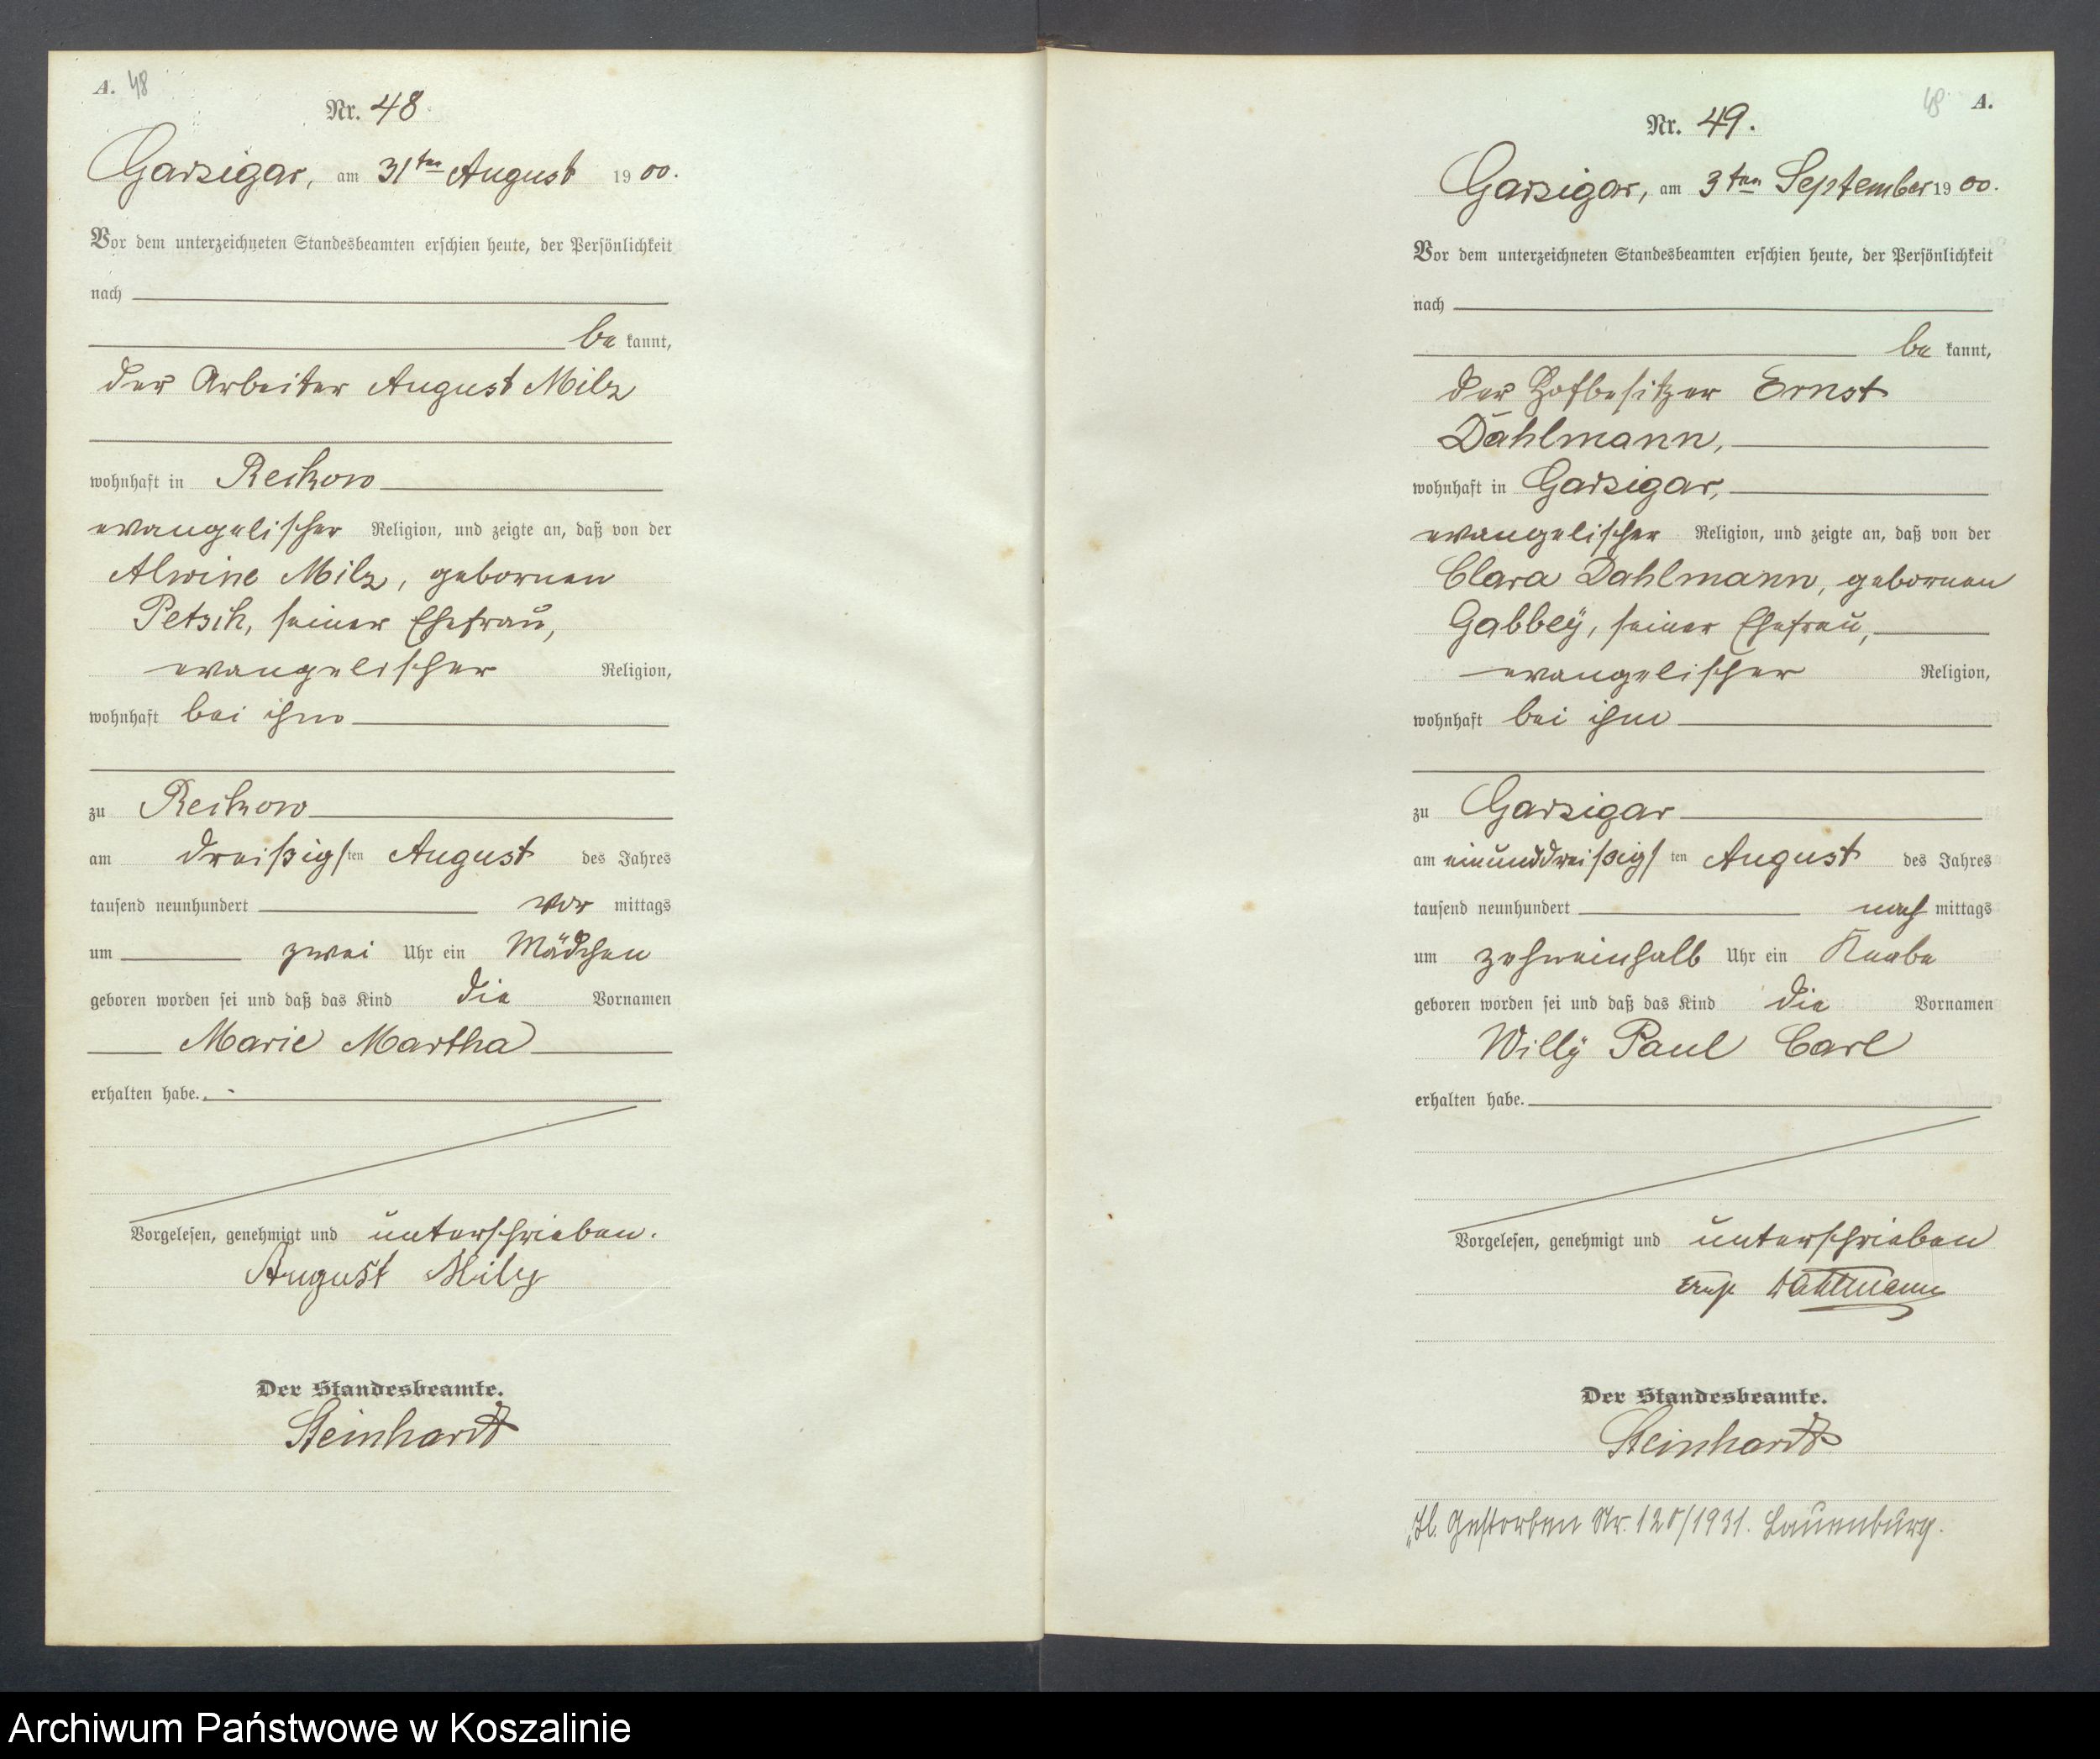 A. 48
Nr. 48.
Garzigar, am 31ten August 1900.
Vor dem unterzeichneten Standesbeamten erschien heute, der Persönlichkeit
nach
be kannt,
der Arbeiter August Milz
wohnhaft in Reckow
evangelischer Religion, und zeigte an, daß von der
Alwine Milz, gebornen
Petsch, seiner Ehefrau,
evangelischer Religion,
wohnhaft bei ihm
zu Reckow
am dreißigsten August des Jahres
tausend neunhundert vor mittags
um zwei Uhr ein Mädchen
geboren worden sei und daß das Kind die Vornamen
Marie Martha
erhalten habe.
Vorgelesen, genehmigt und unterschrieben.
August Milz
Der Standesbeamte.
Steinhardt
49 A.
Nr. 49.
Garzigar, am 3ten September 1900.
Vor dem unterzeichneten Standesbeamten erschien heute, der Persönlichkeit
nach
be kannt,
der Hofbesitzer Ernst
Dahlmann,
wohnhaft in Garzigar,
evangelischer Religion, und zeigte an, daß von der
Clara Dahlmann, gebornen
Gabbey, seiner Ehefrau,
evangelischer Religion,
wohnhaft bei ihm
zu Garzigar
am einunddreißigsten August des Jahres
tausend neunhundert nach mittags
um zehneinhalb Uhr ein Knabe
geboren worden sei und daß das Kind die Vornamen
Willÿ Paul Carl
erhalten habe.
Vorgelesen, genehmigt und unterschrieben
Ernst Dahlmann
Der Standesbeamte.
Steinhardt
Gestorben Nr. 120/1931. Lauenburg.
Archiwum Państwowe w Koszalinie